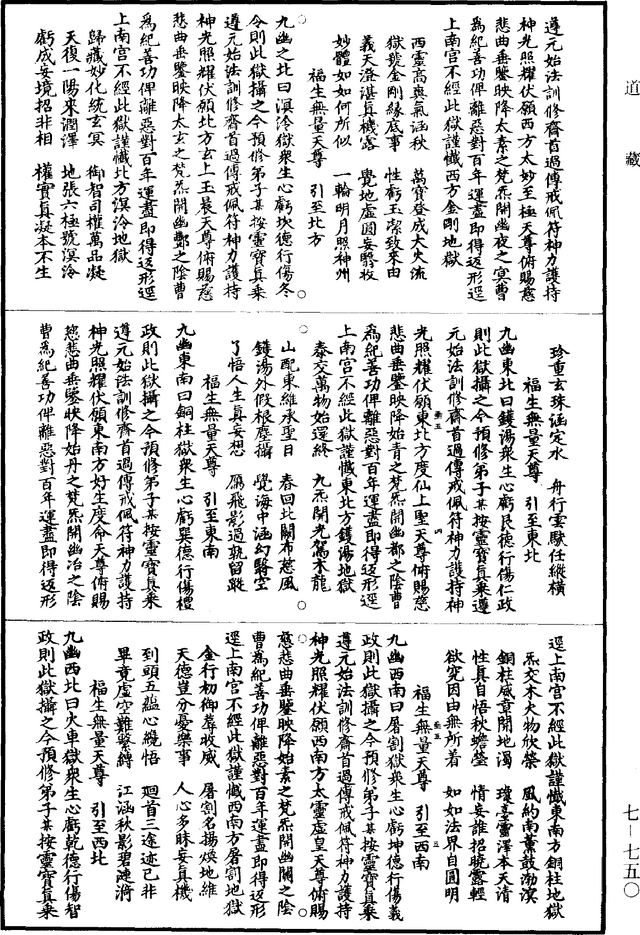 道藏
遵元始法訓修齋首過傳戒佩符神力護持
神光照耀伏願西方太妙至極天尊俯賜慈
悲曲垂鑒映降太素之梵炁開幽夜之冥曹
為紀善功俾離惡對百年運盡即得返形逕
上南宮不經此獄謹懺西方金剛地獄
西靈高爽氣涵秋　萬寶登成大火流
獄號金剛緣底事　性虧玉潔致來由
義天澄湛真機露　覺地虛圓妄翳收
妙體如如何所似　一輪明月照神州
福生無量天尊　引至北方
九幽之北曰溟泠獄衆生心虧坎德行傷冬
令則此獄攝之今預修弟子某按靈寶真乗
遵元始法訓修齋首過傳戒佩符神力護持
神光照耀伏願北方玄上玉晨天尊俯賜慈
悲曲垂鑒映降太玄之梵炁開幽酆之陰曹
為紀善功俾離惡對百年運盡即得返形逕
上南宮不經此獄謹懺北方溟泠地獄
歸藏妙化統玄冥　御智司權萬品凝
天復一陽來潤澤　地張六極號溟泠
虧成妄境招非相　權實真凝本不生
珍重玄珠涵定水　舟行雲馭任縱橫
福生無量天尊　引至東北
九幽東北曰鑊湯衆生心虧艮德行傷仁政
則此獄攝之今預修弟子某按靈寶真乗遵
元始法訓修齋首過傳戒佩符神力護持神
光照耀伏願東北方度仙上聖天尊俯賜慈
悲曲垂鑒映降始青之梵炁開幽都之陰曹
為紀善功俾離惡對百年運盡即得返形逕
上南宮不經此獄謹懺東北方鑊湯地獄
泰交萬物始還終　九炁開光駕木龍
山配東維承聖日　春回北闕布慈風
鑊湯外假根塵攝　覺海中涵幻翳空
了悟人生真妄想　鴈飛影過孰留蹤
福生無量天尊　引至東南
九幽東南曰銅柱獄衆生心虧巽德行傷禮
政則此獄攝之今預修弟子某按靈寶真乗
遵元始法訓修齋首過傳戒佩符神力護持
神光照耀伏願東南方好生度命天尊俯賜
慈悲曲垂鑒映降始丹之梵炁開幽冶之陰
曹為紀善功俾離惡對百年運盡即得返形
逕上南宮不經此獄謹懺東南方銅柱地獄
炁交木火物欣榮　風約南薰鼓渤溟
銅柱咸章開地濁　瓊臺霈澤本天清
性真自悟秋蟾瑩　情妄誰招曉露輕
欲究因由無所着　如如法界自圓明
福生無量天尊　引至西南
九幽西南曰屠割獄衆生心虧坤德行傷義
政則此獄攝之今預修弟子某按靈寶真乗
遵元始法訓修齋首過傳戒佩符神力護持
神光照耀伏願西南方太靈虛皇天尊俯賜
慈悲曲垂鑒映降始素之梵炁開幽關之陰
曹為紀善功俾離惡對百年運盡即得返形
逕上南宮不經此獄謹懺西南方屠割地獄
金行初御羣收威　屠割名揚煥地維
天德豈分憂樂事　人心多昧妄真機
到頭五蘊心纔悟　迴首三塗迹已非
畢竟虛空難繫縛　江涵秋影碧漣漪
福生無量天尊　引至西北
九幽西北曰火車獄衆生心虧乾德行傷智
政則此獄攝之今預修弟子某按靈寶真乗
七—七五〇